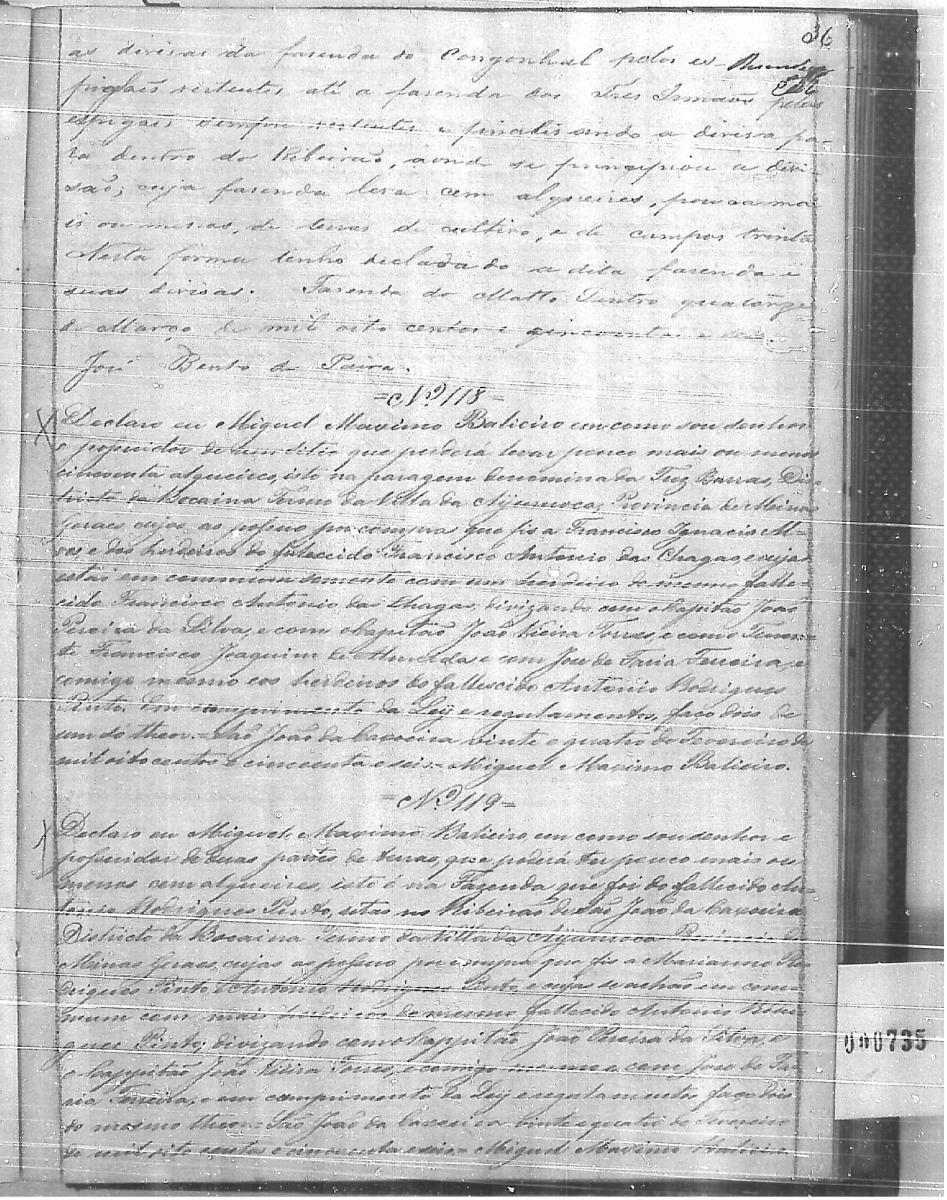 36
as divisas da fasenda do Congonhal pelos es-
pigões vertentes até a fasenda dos Tres Irmãos pelos
espigões sempre vertentes e finalisando a divisa pa-
ra dentro do Ribeirão, aonde se principiou a divi-
são, cuja fasenda leva cem alqueires, pouco ma
is ou menos, de terras de cultivo, e de campos trinta
Nesta forma tenho declarado a dita fasenda e
suas divisas. Fasenda do Matto Dentro quatorze
de Março de mil oito centos e cincoenta e seis.
José Bento de Paiva.
=Nº 118=
Declaro eu Miguel Maximo Balieiro em como sou senhor
e possuidor de um sitio que poderá levar pouco mais ou menos
cincoenta alqueires, isto na paragem denominada Trez Barras, Dis-
tricto da Bocaina Termo da Villa da Ayuruoca, Provincia de Minas
Geraes, cujas as possuo por compra que fis a Francisco Ignacio
e dos herdeiros do fallecido Francisco Antonio das Chagas, e cujas
estão em commum somente com um herdeiro do mesmo falle-
cido Francisco Antonio das Chagas, divizando com o Capitão João
Pereira da Silva, e com o Capitão João Vieira Torres, e com o Tenen-
te Francisco Joaquim de Almeida, e com Jose de Faria Ferreira, e
comigo mesmo e os herdeiros do fallescido Antonio Rodrigues
Pinto. Em comprimento da Ley e regulamentos, faço dois de
um só theor.= São João da Caxoeira vinte e quatro de Fevereiro de
mil oito centos e cincoenta e seis.= Miguel Maximo Balieiro.
=Nº 119=
Declaro eu Miguel Maximo Balieiro, em como sou senhor e
possuidor de duas partes de terras, que poderá ter pouco mais ou
menos cem alqueires, isto é na Fazenda que foi do fallecido An-
tonio Rodrigues Pinto, estas no Ribeirão de São João da Caxoeira
Districto da Bocaina Termo da Villa da Ayuruoca Provincia de
Minas Geraes, cujas as possuo por compra que fis a Marianno Ro-
drigues Pinto e Antonio Rodrigues Pinto, e cujas se achão em com-
mum com mais herdeiros do mesmo fallecido Antonio Rodri-
gues Pinto, divizando com o Cappitão João Pereira da Silva, e
o Cappitão João Vieira Torres, e comigo mesmo e com Jose de Fa-
ria Ferreira, e em comprimento da Ley e regulamentos faço dois
do mesmo theor.= São João da Caxoeira vinte e quatro de Fevereiro
de mil oito centos e cincoenta e seis= Miguel Maximo Balieiro
000735